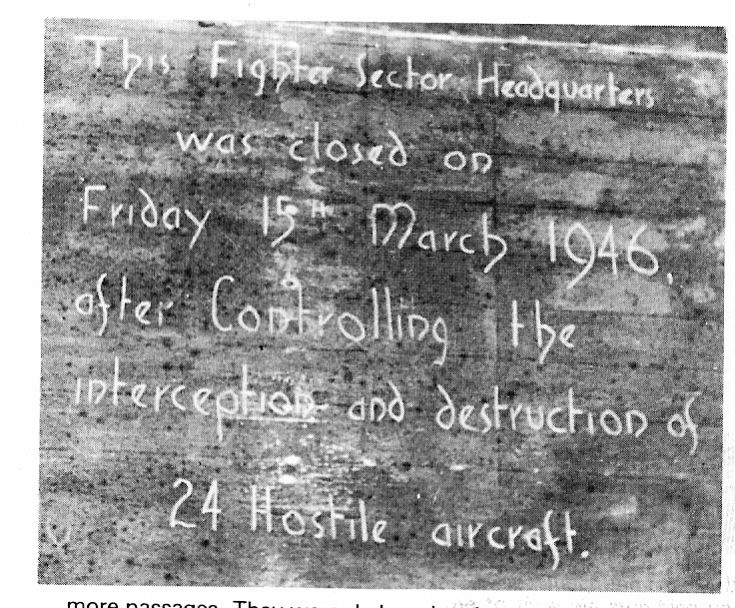 This Fighter Sector Headquarters
was closed on
Friday 15TH March 1946,
after Controlling the
interception and destruction of
24 Hostile aircraft.
more passages. They were